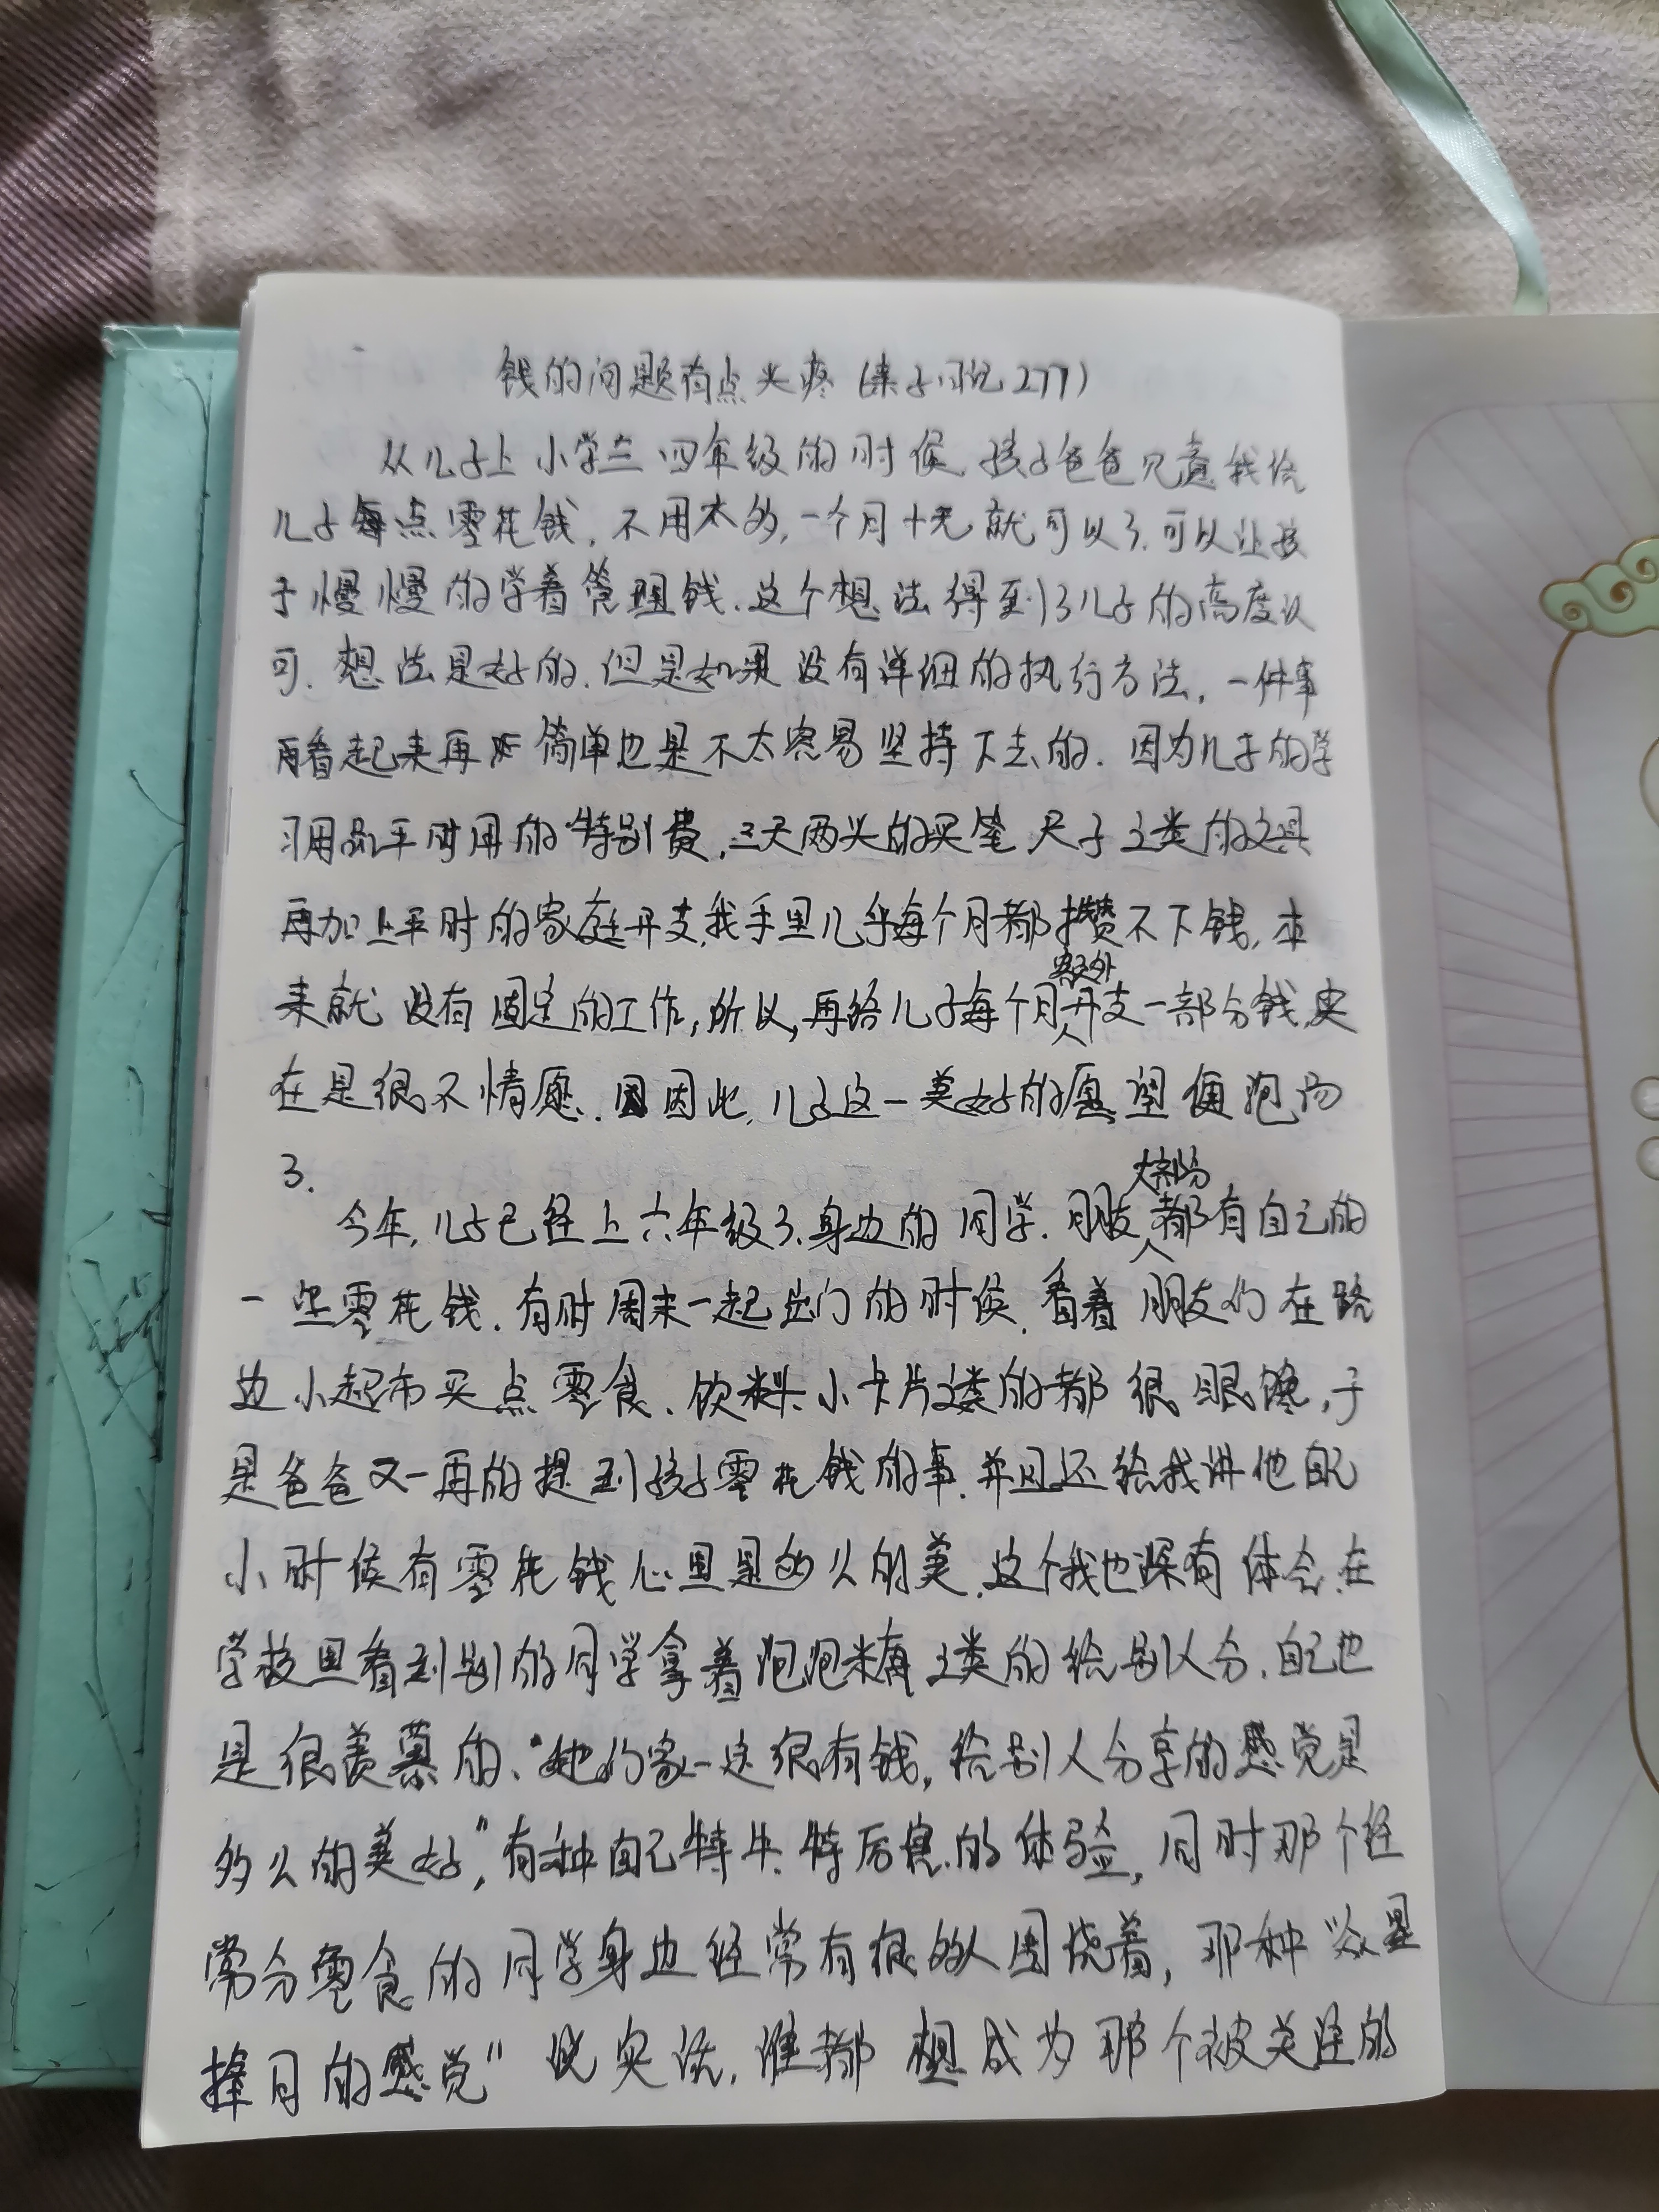 钱的问题有点头疼(亲子日记277)
从儿子上小学三四年级的时候,孩子爸爸只意我给
儿子每点零花钱,不用太多,一个月十元就可以了,可以让孩
子慢慢的学着管理钱.这个想法得到了儿子的高度认
可.想法是好的.但是如果没有详细的执行方法,一件事
看起来再简单也是不太容易坚持下去的.因为儿子的学
习用品平时用的特别费,三天两头的买笔、尺子之类的文具
再加上平时的家庭开支,我手里几乎每个月都攒不下钱,本
来就没有固定的工作,所以,再给儿子每个月额外开支一部分钱,实
在是很不情愿.因此,儿子这一美好的愿望便泡汤
了.
今年,儿子已经上六年级了、身边的同学.朋友大部分都有自己的
一些零花钱.有时周末一起出门的时候,看着朋友们在路
边小超市买点零食、饮料、小卡片之类的都很眼馋,于
是爸爸又一再的提到孩子零花钱的事.并且还给我讲他自己
小时候有零花钱心里是多么的美.这个我也深有体会.在
学校里看到别的同学拿着泡泡糖之类的给别人分.自己也
是很羡慕的、“她们家一定很有钱,给别人分享的感觉是
多么的美好”,有种自己特牛、特厉害的体验,同时那个经
常分零食的同学身边经常有很多人围绕着,那种“众星
捧月的感觉”说实话,谁都想成为那个被关注的